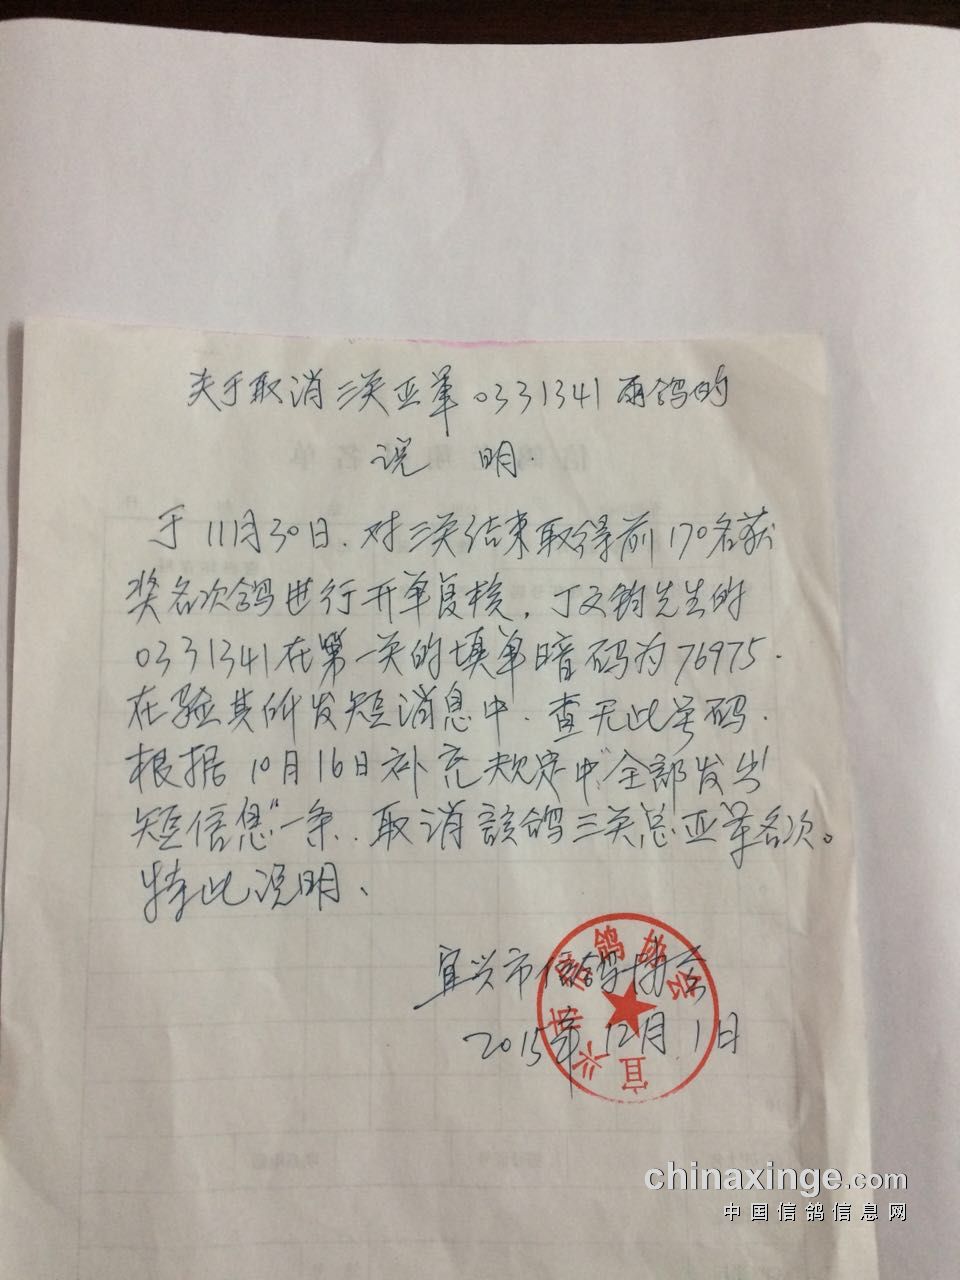 关于取消三关亚军0331341雨鸽的
说 明.
于11月30日、对三关结束取得前170名获
奖名次鸽进行开单复核，丁文钧先生的
0331341在第一关的填单暗码为76975.
在验其所发短消息中、查无此号码.
根据10月16日补充规定中"全部发出
短信息"一条、取消該鸽三关总亚军名次。
特此说明、
宜兴市信鸽协会
2015年12月1日
宜兴市信鸽协会
chinaxinge.com
中国信鸽信息网